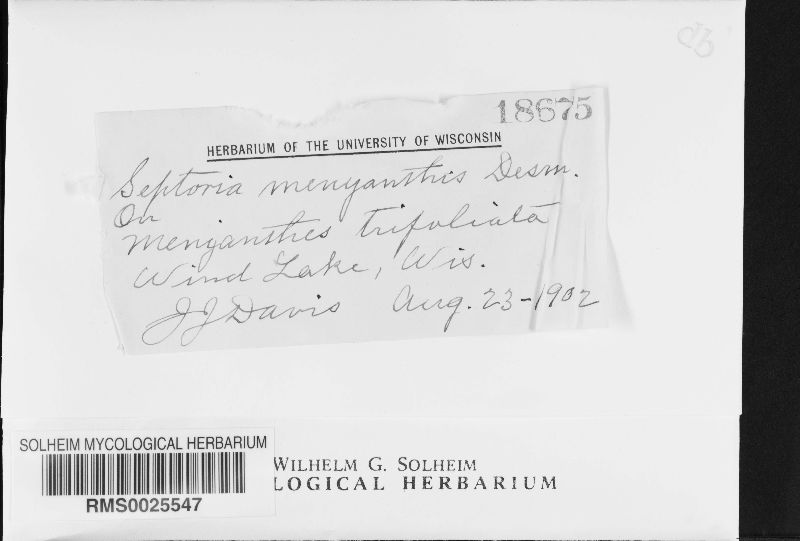 18675
HERBARIUM OF THE UNIVERSITY OF WISCONSIN
Septoria menyanthis Desm.
On
Menyanthes trifoliata
Wind Lake, Wis.
JJ Davis Aug. 23-1902
SOLHEIM MYCOLOGICAL HERBARIUM
RMS0025547
WILHELM G. SOLHEIM
LOGICAL HERBARIUM